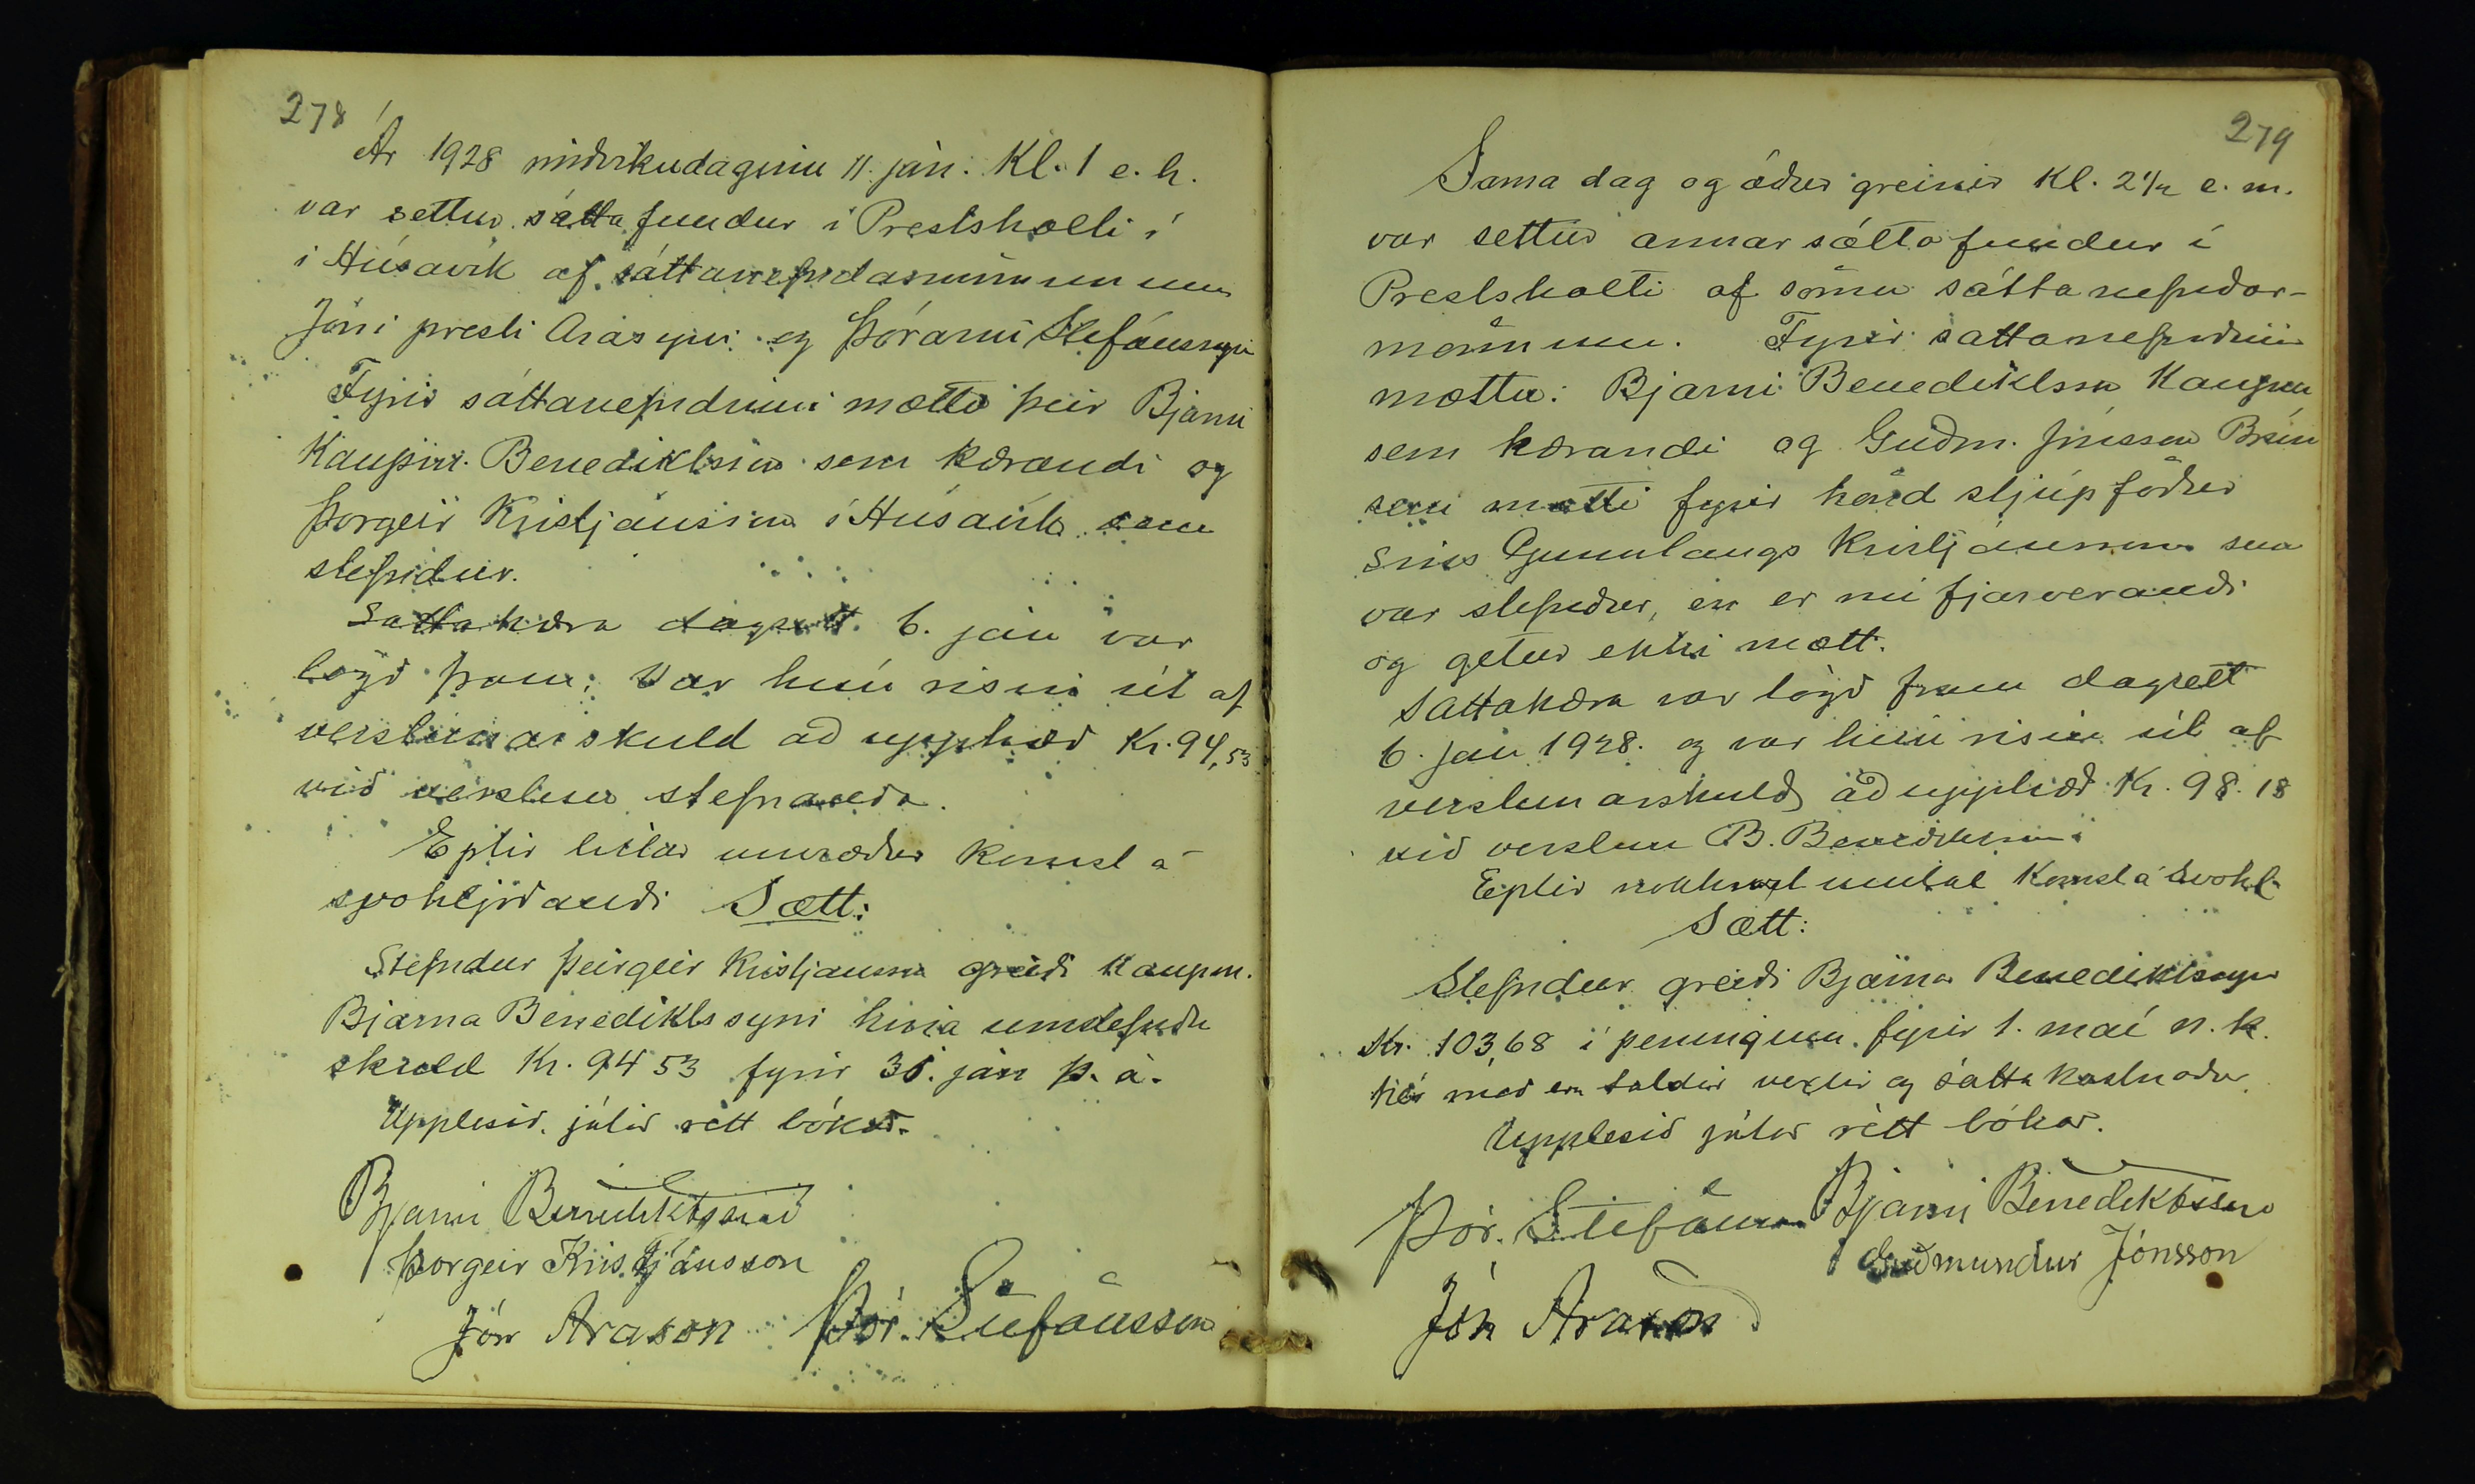 278
Ár 1928 miðvikudaginn 11. jan. Kl. 1 e. h.
var settur sáttafundur í Prestsholti í
í Húsavík af sáttanefndarmönnunum
Jóni presti Arasyni og Þórarni Stefánssyni
Fyrir sáttanefndinni mætti þeir Bjarni
Kaupm. Benediktsson sem kærandi og
Þorgeir Kristjánsson í Húsavík sem
stefndur.
Sáttakæra dagsett 6. jan var
lögð fram; Var hún risin út af
verslunarskuld að upphæð Kr. 94,53
við verslun stefnanda.
Eptir litlar umræður komst á
svohljóðandi Sætt:
Stefndur Þeirgeir Kristjansson greiði Kaupm.
Bjarna Benediktssyni hina umstefndu
skuld Kr. 94 53 fyrir 31. jan þ. á.
Upplesið, játið rétt bókað.
Bjarni Benediktsson
Þorgeir Kristjánsson
Jón Arason Þór. Stefánsson
279
Sama dag og áður greinir Kl. 2 1/2 e. m.
var settur annar sáttafundur í
Prestsholti af sömu sáttanefndar-
mönnum. Fyrir sáttanefndinni
mættu: Bjarni Benediktsson Kaupm
sem kærandi og Guðm. Jónsson
sem mætti fyrir hönd stjúpföður
síns Gunnlaugs Kristjánssonar sem
var stefndur, en er nú fjarverandi
og getur ekki mætt.
Sáttakæra var lögð fram dagsett
6. jan 1928. og var hún risin út af
verslunarskuld að upphæð Kr. 98.18
við verslun B. Benediktssonar
Eptir nokkurt umtal Komst á svohl.
Sætt:
Stefndur greiði Bjarna Benediktssyni
Kr. 103,68 í peningum fyrir 1. maí n. k.
hér með eru taldir vextir og sáttakostnaður
Upplesið játað rétt bókað.
Þór. Stefánsson Bjarni Benediktsson
Guðmundur Jónsson
Jón Arason